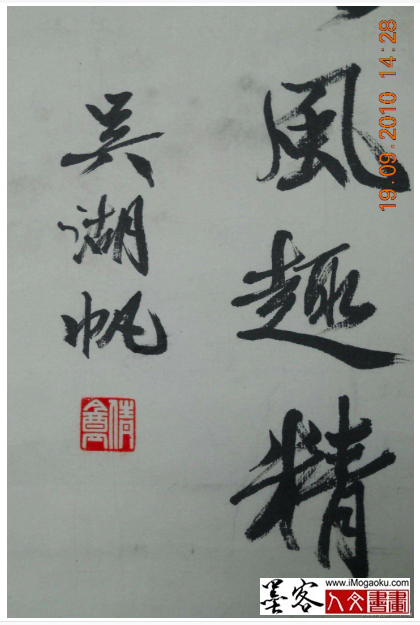 風趣精
吳湖帆
19.09.2010 14:28
墨客
www.iMogaoku.com
人文書畫